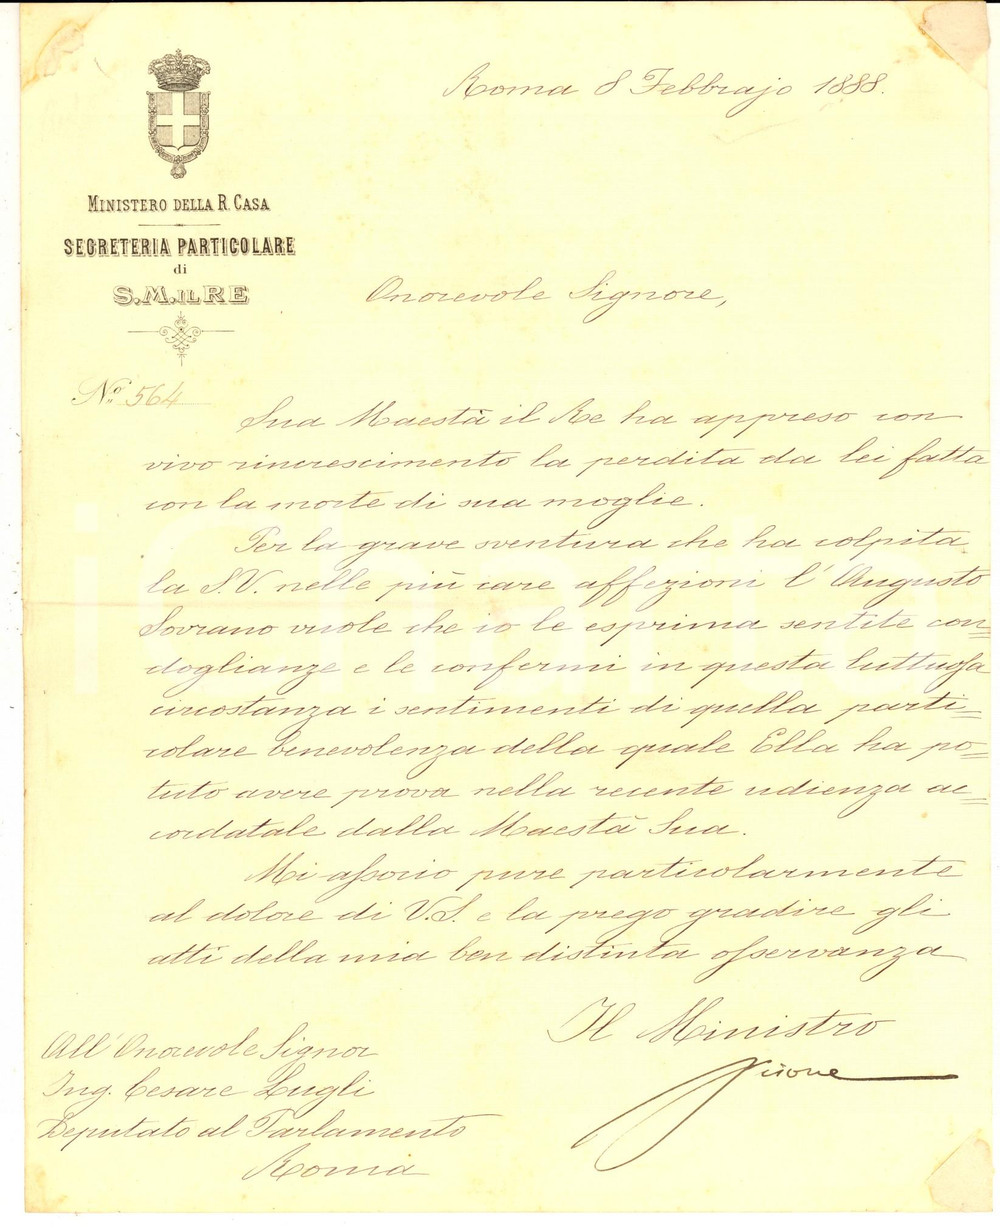 Roma 8 Febbrajo 1888.
MINISTERO DELLA R. CASA
SEGRETERIA PARTICOLARE
di
S.M. IL RE
Onorevole Signore,
N.º 564
Sua Maestà il Re ha appreso con
vivo rincrescimento la perdita da lei fatta
con la morte di sua moglie.
Per la grave sventura che ha colpita
la S.V. nelle più care affezioni l'Augusto
Sovrano vuole che io le esprima sentite con=
doglianze e le confermi in questa luttuosa
circostanza i sentimenti di quella parti=
colare benevolenza della quale Ella ha po=
tuto avere prova nella recente udienza ac=
cordatale dalla Maestà Sua.
Mi associo pure particolarmente
al dolore di V.S. e la prego gradire gli
atti della mia ben distinta osservanza
Il Ministro
All'Onorevole Signor
Ing. Cesare Lugli
Deputato al Parlamento
Roma
iCharta